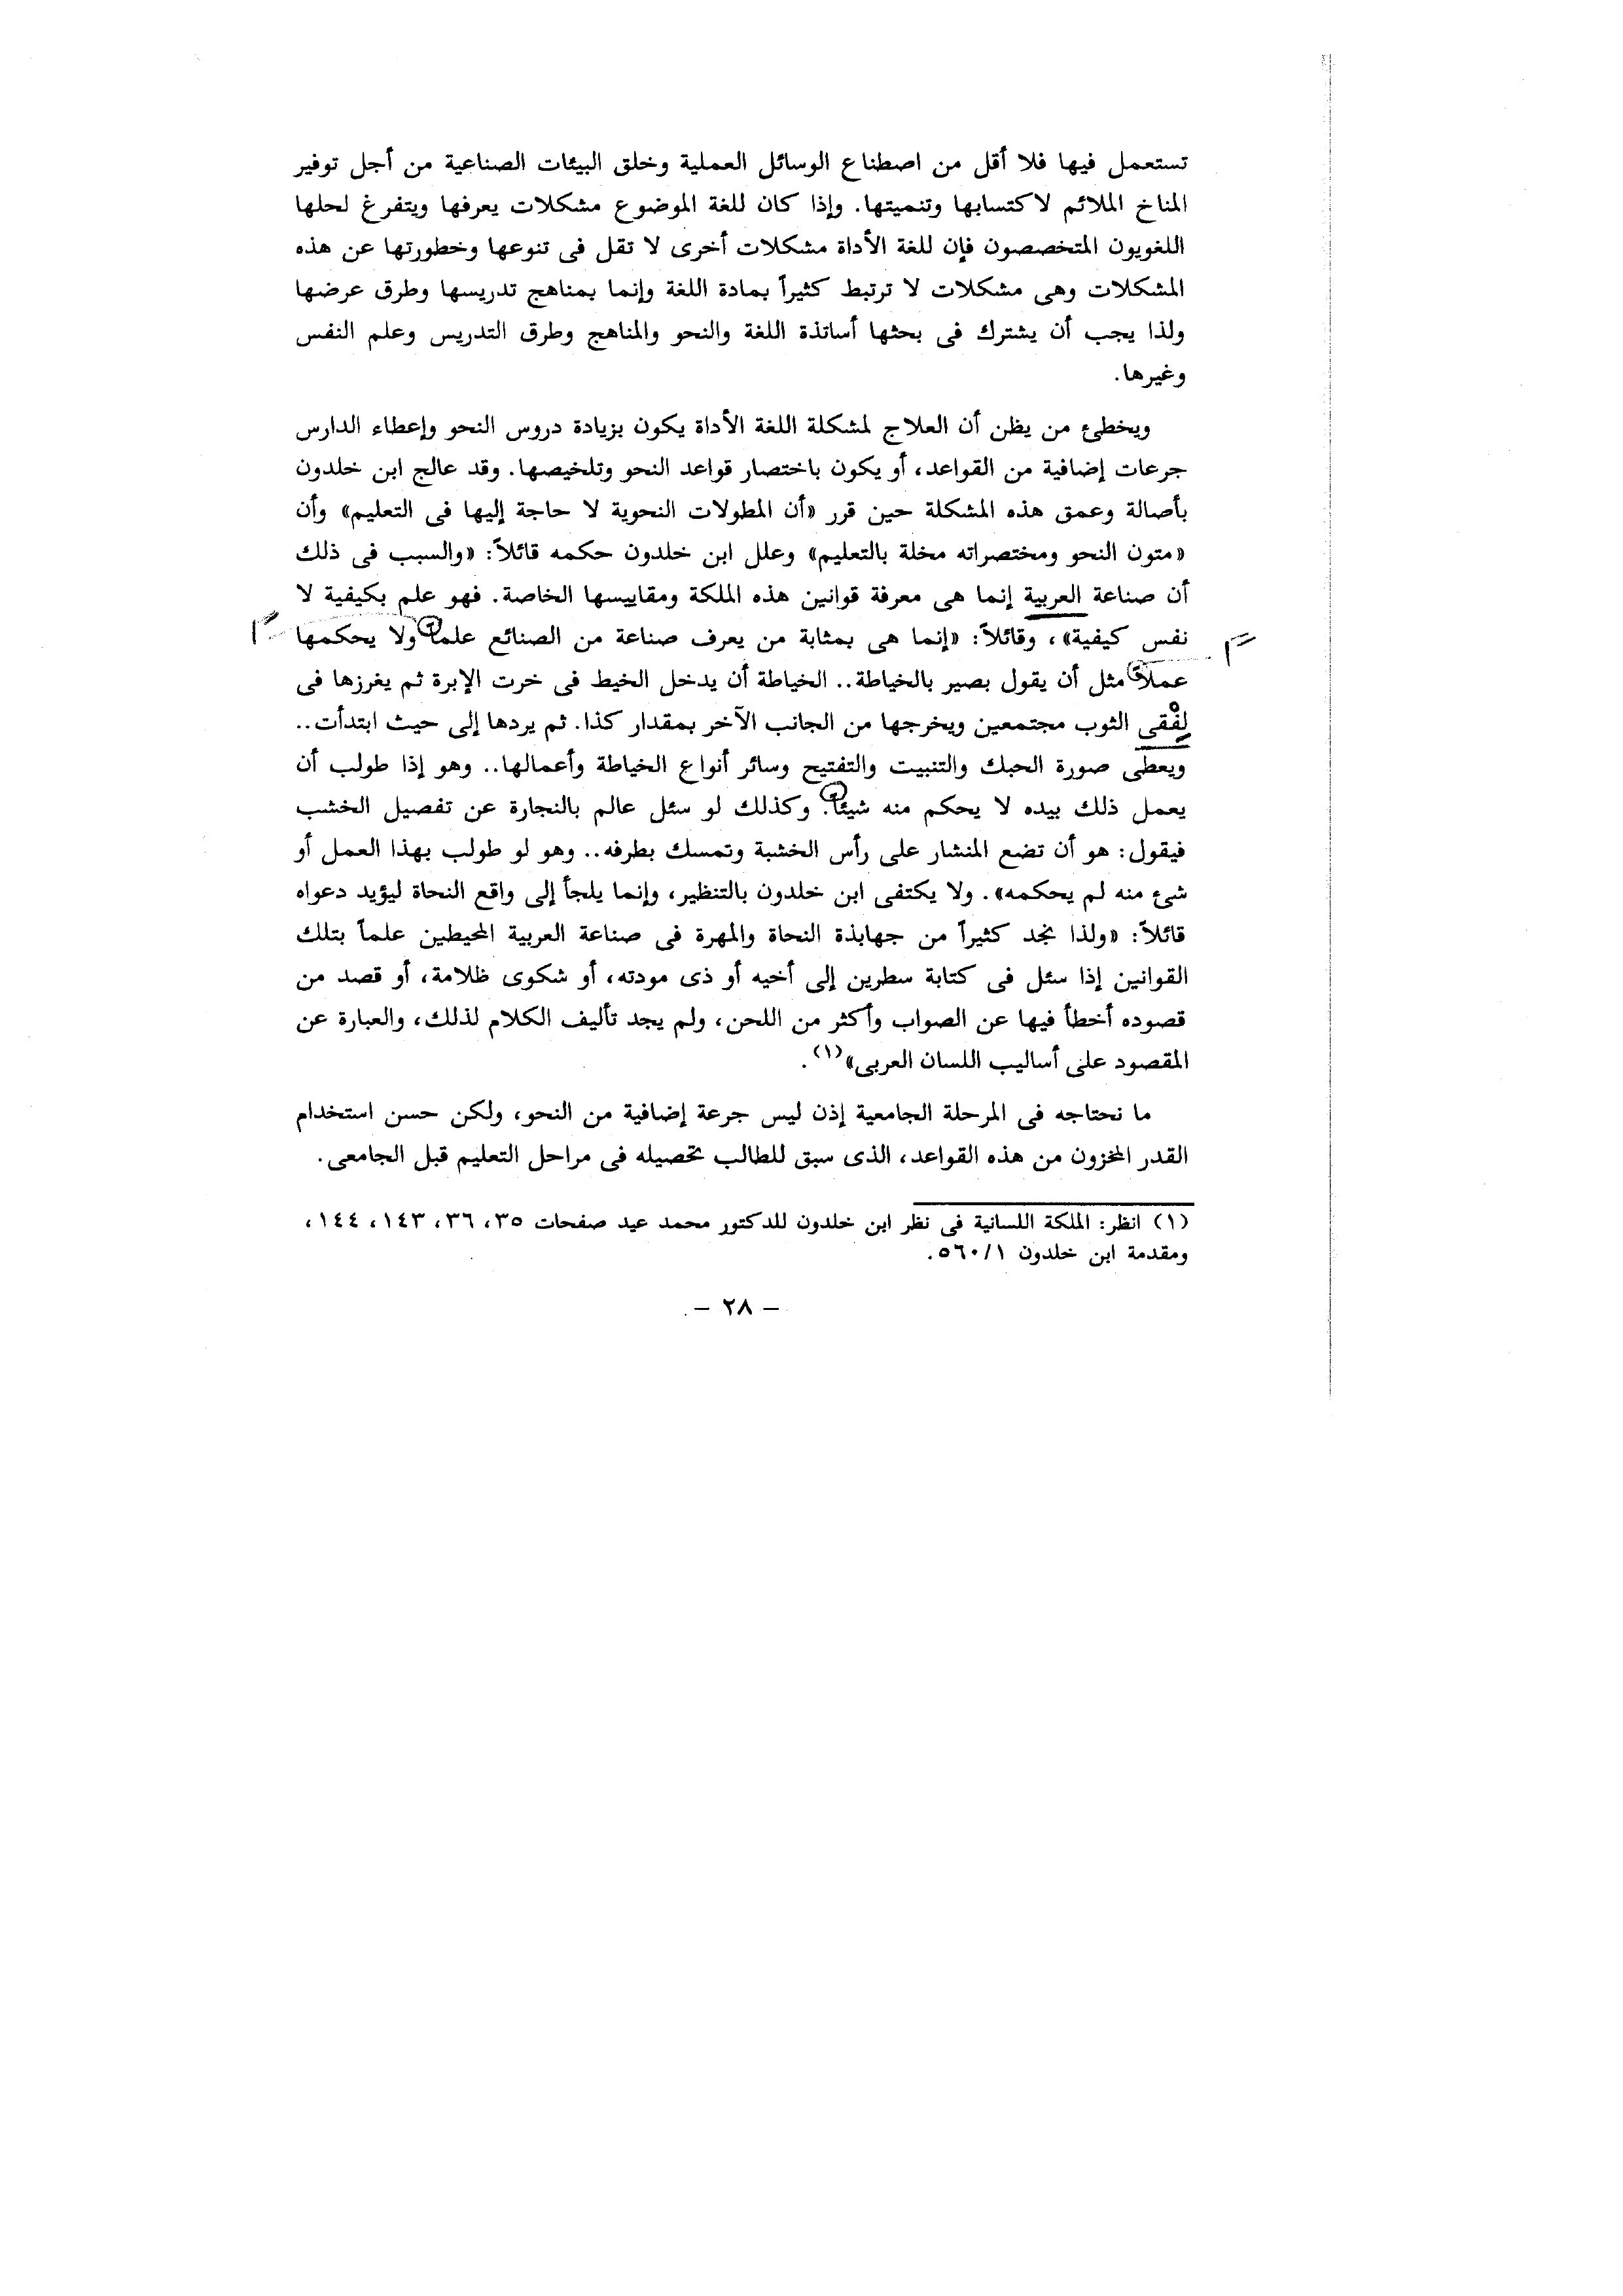 تستعمل فيها فلا أقل من اصطناع الوسائل العملية وخلق البيئات الصناعية من أجل توفير
المناخ الملائم لاكتسابها وتنميتها. وإذا كان للغة الموضوع مشكلات يعرفها ويتفرغ لحلها
اللغويون المتخصصون فإن للغة الأداة مشكلات أخرى لا تقل فى تنوعها وخطورتها عن هذه
المشكلات وهى مشكلات لا ترتبط كثيراً بمادة اللغة وإنما بمناهج تدريسها وطرق عرضها
ولذا يجب أن يشترك فى بحثها أساتذة اللغة والنحو والمناهج وطرق التدريس وعلم النفس
وغيرها.
ويخطئ من يظن أن العلاج لمشكلة اللغة الأداة يكون بزيادة دروس النحو وإعطاء الدارس
جرعات إضافية من القواعد، أو يكون باختصار قواعد النحو وتلخيصها. وقد عالج ابن خلدون
بأصالة وعمق هذه المشكلة حين قرر «أن المطولات النحوية لا حاجة إليها فى التعليم» وأن
«متون النحو ومختصراته مخلة بالتعليم» وعلل ابن خلدون حكمه قائلاً: «والسبب فى ذلك
أن صناعة العربية إنما هى معرفة قوانين هذه الملكة ومقاييسها الخاصة. فهو علم بكيفية لا
نفس كيفية»، وقائلاً: «إنما هى بمثابة من يعرف صناعة من الصنائع علماً ولا يحكمها
عملاً مثل أن يقول بصير بالخياطة.. الخياطة أن يدخل الخيط فى خرت الإبرة ثم يغرزها فى
لِفْقى الثوب مجتمعين ويخرجها من الجانب الآخر بمقدار كذا. ثم يردها إلى حيث ابتدأت..
ويعطى صورة الحبك والتنبيت والتفتيح وسائر أنواع الخياطة وأعمالها.. وهو إذا طولب أن
يعمل ذلك بيده لا يحكم منه شيئاً. وكذلك لو سئل عالم بالنجارة عن تفصيل الخشب
فيقول: هو أن تضع المنشار على رأس الخشبة وتمسك بطرفه.. وهو لو طولب بهذا العمل أو
شئ منه لم يحكمه». ولا يكتفى ابن خلدون بالتنظير، وإنما يلجأ إلى واقع النحاة ليؤيد دعواه
قائلاً: «ولذا نجد كثيراً من جهابذة النحاة والمهرة فى صناعة العربية المحيطين علماً بتلك
القوانين إذا سئل فى كتابة سطرين إلى أخيه أو ذى مودته، أو شكوى ظلامة، أو قصد من
قصوده أخطأ فيها عن الصواب وأكثر من اللحن، ولم يجد تأليف الكلام لذلك، والعبارة عن
المقصود على أساليب اللسان العربى»(١).
ما نحتاجه فى المرحلة الجامعية إذن ليس جرعة إضافية من النحو، ولكن حسن استخدام
القدر المخزون من هذه القواعد، الذى سبق للطالب تحصيله فى مراحل التعليم قبل الجامعى.
(١) انظر: الملكة اللسانية فى نظر ابن خلدون للدكتور محمد عيد صفحات ٣٥، ٣٦، ١٤٣، ١٤٤،
ومقدمة ابن خلدون ٥٦٠/١.
– ٢٨ –